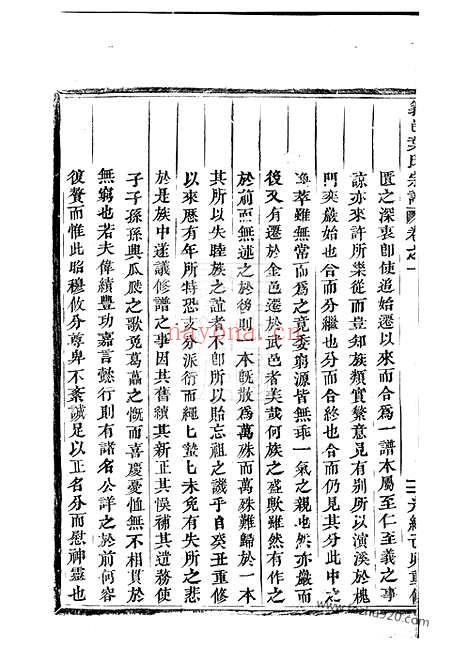 宗譜 卷之一
匱之深衷卽使追始遷以來而合爲一譜本屬至仁至義之事
諒亦來許所樂從而豈知族類實繁意見有別所以濱溪於槐
門奕嚴始也合而分繼也分而合終也合而仍見其分此中之
萃雖無常而爲之竟委窮源皆無乖一氣之親也然亦嚴而
後又有遷於金邑遷於武邑者美哉何族之盛歟雖然有作之
於前而無述之於後則一本旣散爲萬殊而萬殊難歸於一本
其所以失睦族之誼者不卽所以貽忘祖之譏乎自癸丑重修
以來歷有年所特恐支分派衍而繩繩蟄蟄未免有失所之悲
於是族中遂議修譜之事因其舊續其新正其悞補其遺務使
子子孫孫興瓜瓞之歌免葛藟之慨而喜慶憂恤無不相貫於
無窮也若夫偉績豐功嘉言懿行則有諸名公詳之於前何容
復贅而惟此昭穆攸分尊卑不紊誠足以正名分而慰神靈也
光緒 卯重修
nayona.ch